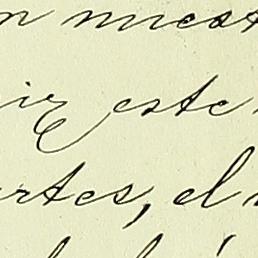 n nuest
ir este
rtes, el